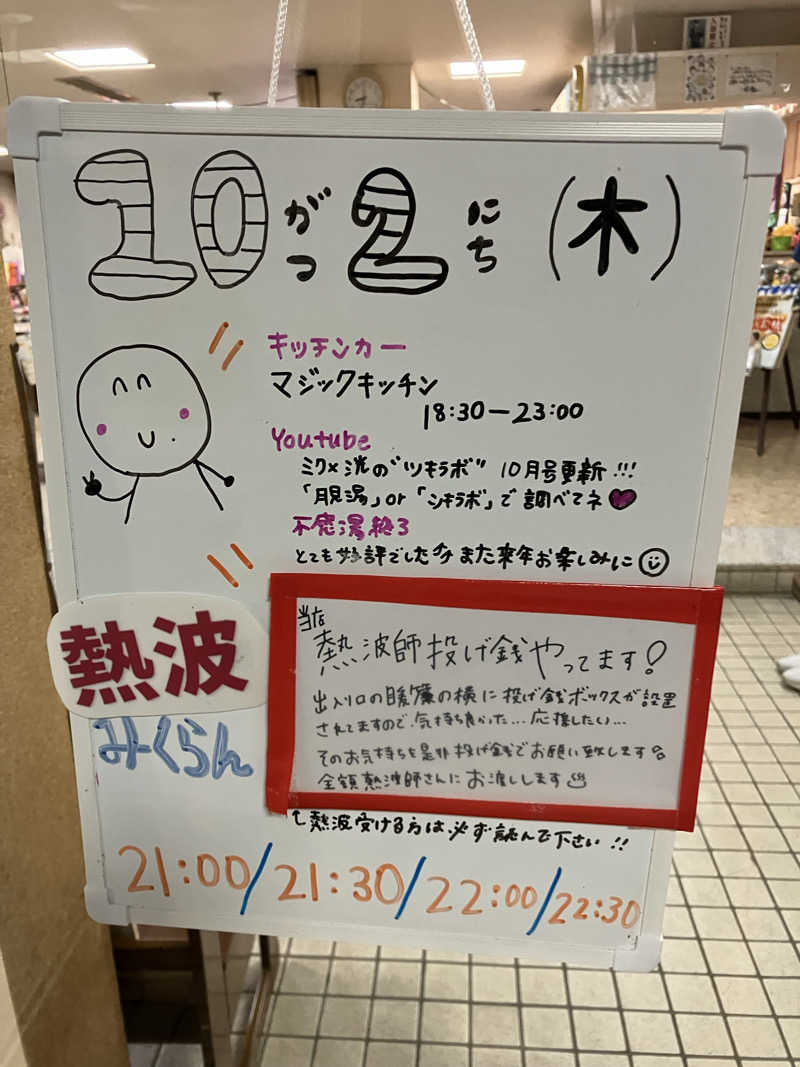 10がつ2にち(木)
キッチンカー
マジックキッチン
18:30ー23:00
Youtube
ミク×洸の"ツキラボ" 10月号更新!!!
「月見湯」or「ツキラボ」で調べてネ♥
不感湯終了
とても好評でした また来年お楽しみに☺
熱波
みくらん
当店
熱波師投げ銭やってます!
出入り口の暖簾の横に投げ銭ボックスが設置
されてますので、気持ち良かった…応援したい…
そのお気持ちを是非投げ銭でお願い致します
全額熱波師さんにお渡しします♨
熱波受ける方は必ず読んで下さい!!
21:00/21:30/22:00/22:30